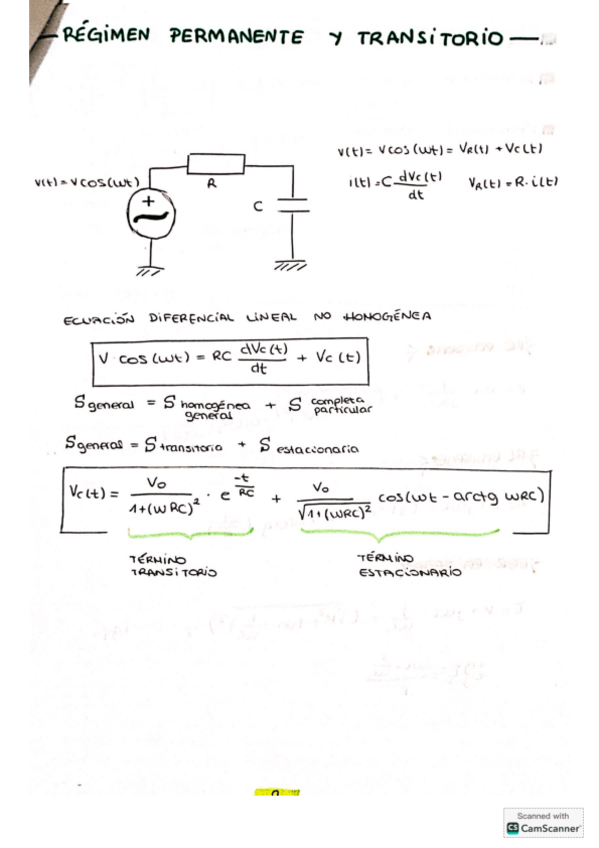 — RÉGIMEN PERMANENTE Y TRANSITORIO —
V(t) = V cos (wt) = VR(t) + Vc(t)
V(t) = V cos(wt)
R
i(t) = C dVc(t)/dt VR(t) = R · i(t)
+
C
ECUACIÓN DIFERENCIAL LINEAL NO HOMOGÉNEA
V · cos (wt) = RC dVc(t)/dt + Vc (t)
S general = S homogénea general + S completa particular
S general = S transitoria + S estacionaria
Vc(t) = Vo/1+(wRC)² · e^(-t/RC) + Vo/√1+(wRC)² cos(wt - arctg wRC)
TÉRMINO TÉRMINO
TRANSITORIO ESTACIONARIO
Scanned with
CS CamScanner